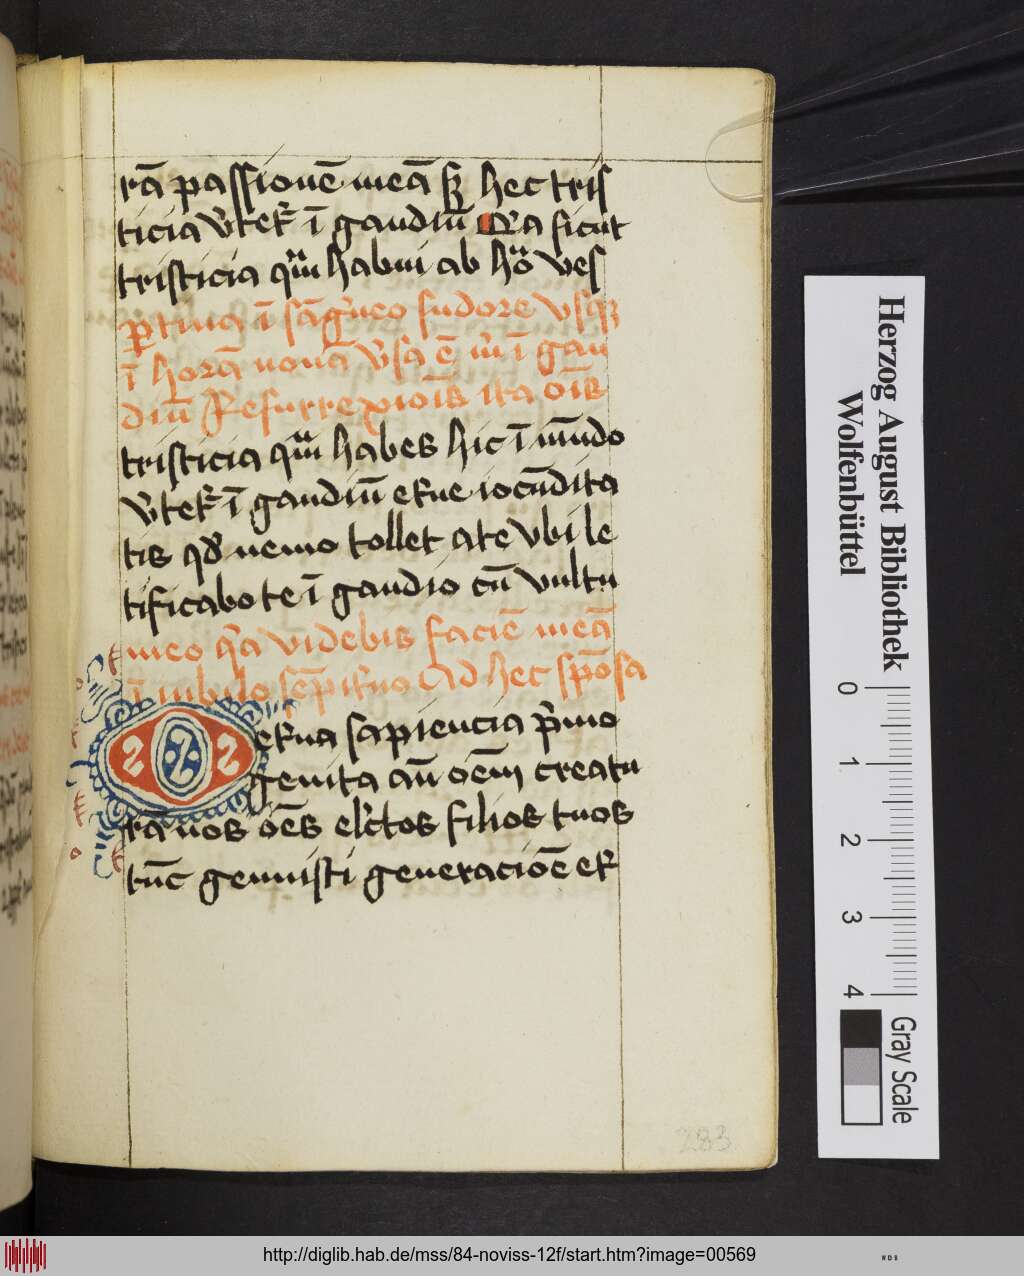 rā passionē meā sʒ hec tris
ticia v̉tet̉ ī gaudiū Qr̄a sicut
tristicia qm̄ habui ab hō ves
ꝑtina ī sāgīeo sudore vsqʒ
ī horā nonā v̉sa ē m̄ ī gau
diū Resurrexiōīs ita oīs
tristicia qm̄ habes hic ī mūdo
v̉tet̉ ī gaudiū et̉ne iocūdita
tis qd̄ nemo tollet a te vbi le
tificabo te ī gaudio cū vultu
meo qr̄a videbis faciē meā
ī iubilo sēpit̉no Ad hec spōsa
O et̉na sapiencia p̄mo
genita aū oēm creatu
rā nos oēs el̄ctos filios tuos
tūc genuisti generaciōē et̉
283
Herzog August Bibliothek
Wolfenbüttel
0
1
2
3
4
Gray Scale
http://diglib.hab.de/mss/84-noviss-12f/start.htm?image=00569